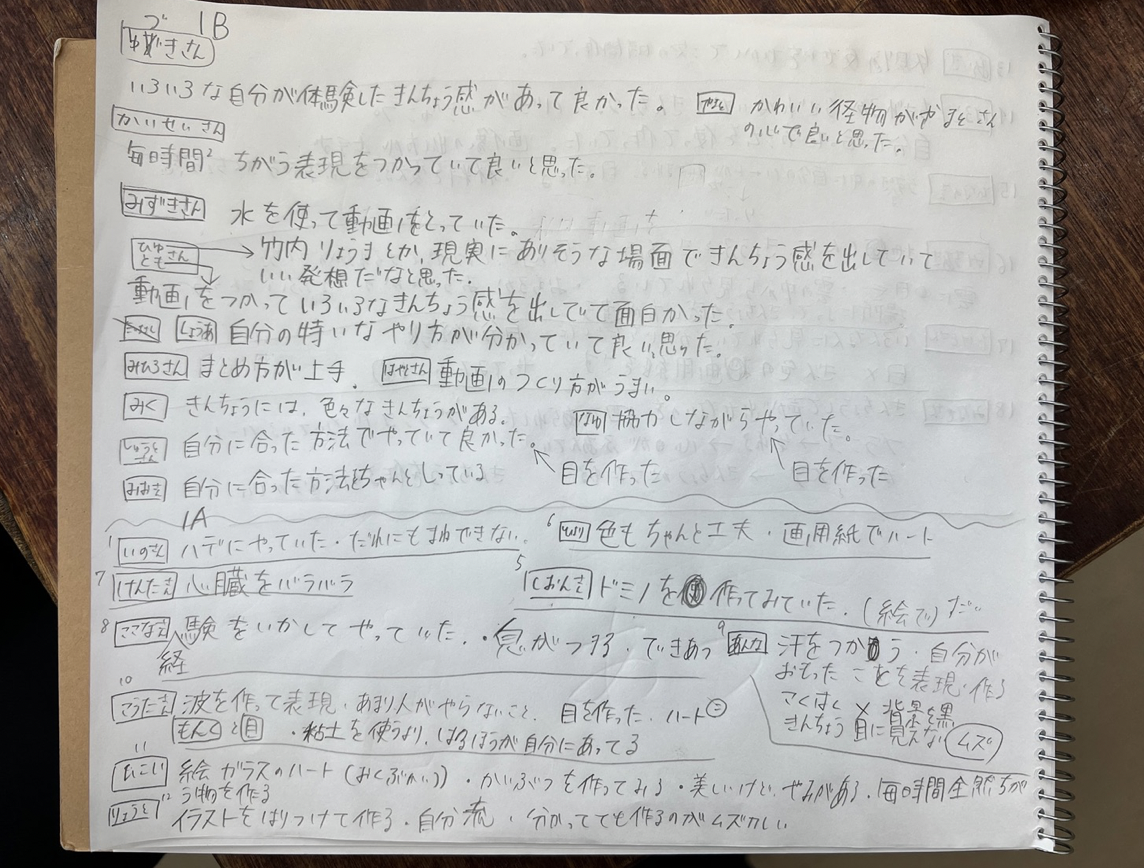 1B
いろいろな自分が体験したきんちょう感があって良かった。
かわいい怪物がやまとさん
の心で良いと思った。
かいせいさん
毎日時間 ちがう表現をつかっていて良いと思った。
みずきさん 水を使って動画をとっていた。
ひゅ
ともさん → 竹内りょうまとか、現実にありそうな場面できんちょう感を出していて
いい発想だなと思った。
動画をつかっていろいろなきんちょう感を出してて面白かった。
しょうあ 自分の特いなやり方が分かっていて良い思った。
みひろさん まとめ方が上手. はやとさん 動画のつくり方がうまい。
みく きんちょうには、色々なきんちょうがある。
協力しながらやっていた。
しゅうとさん 自分に合った方法でやっていて良かった。
目を作った 目を作った
みおさん 自分に合った方法をちゃんとしっている
1A
1 いのさん ハデにやっていた・だれにもまねできない。
6 色もちゃんと工夫・画用紙でハート
7 けんたさん 心臓をバラバラ
5 しおんさん ドミノを作ってみていた. (絵で)
8 ここなさん 経験をいかしてやっていた.・息がつまる・できあっ
9 あんな 汗をつかう・自分が
おもったことを表現・作る
こくはく × 背景を黒
きんちょう 目に見えない ムズ
10 こうたさん 波を作って表現・あまり人がやらないこと. 目を作った.ハート
もんくと目 ・粘土を使うより、はるほうが自分にあってる
11 絵ガラスのハート(おくぶかい)・かいぶつを作ってみる・美しいけどやみがある.毎日時間全然ちが
う物を作る
12 りょうと イラストをはりつけて作る・自分流・分かってても作るのがムズカしい